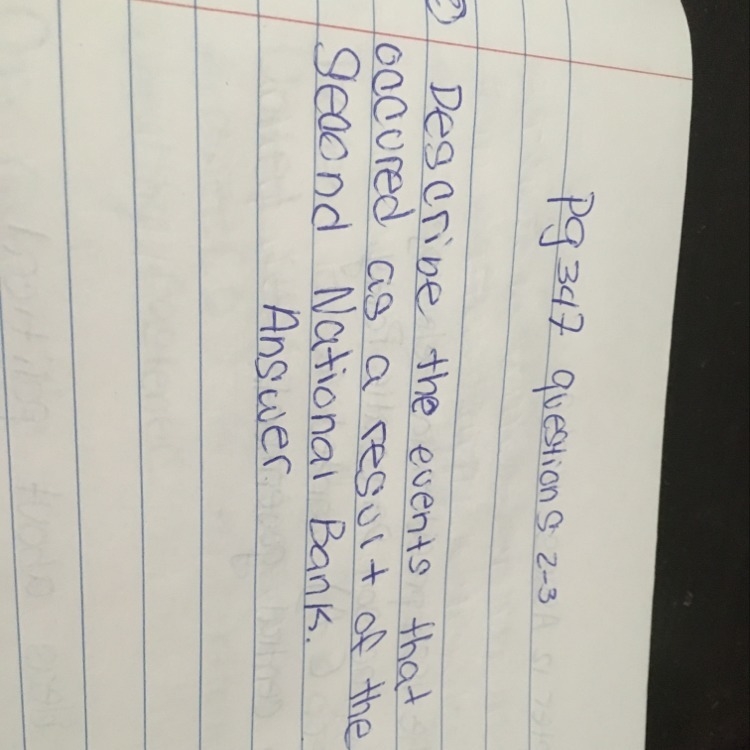 pg 347 questions 2-3
2) Describe the events that
occured as a result of the
Second National Bank.
Answer